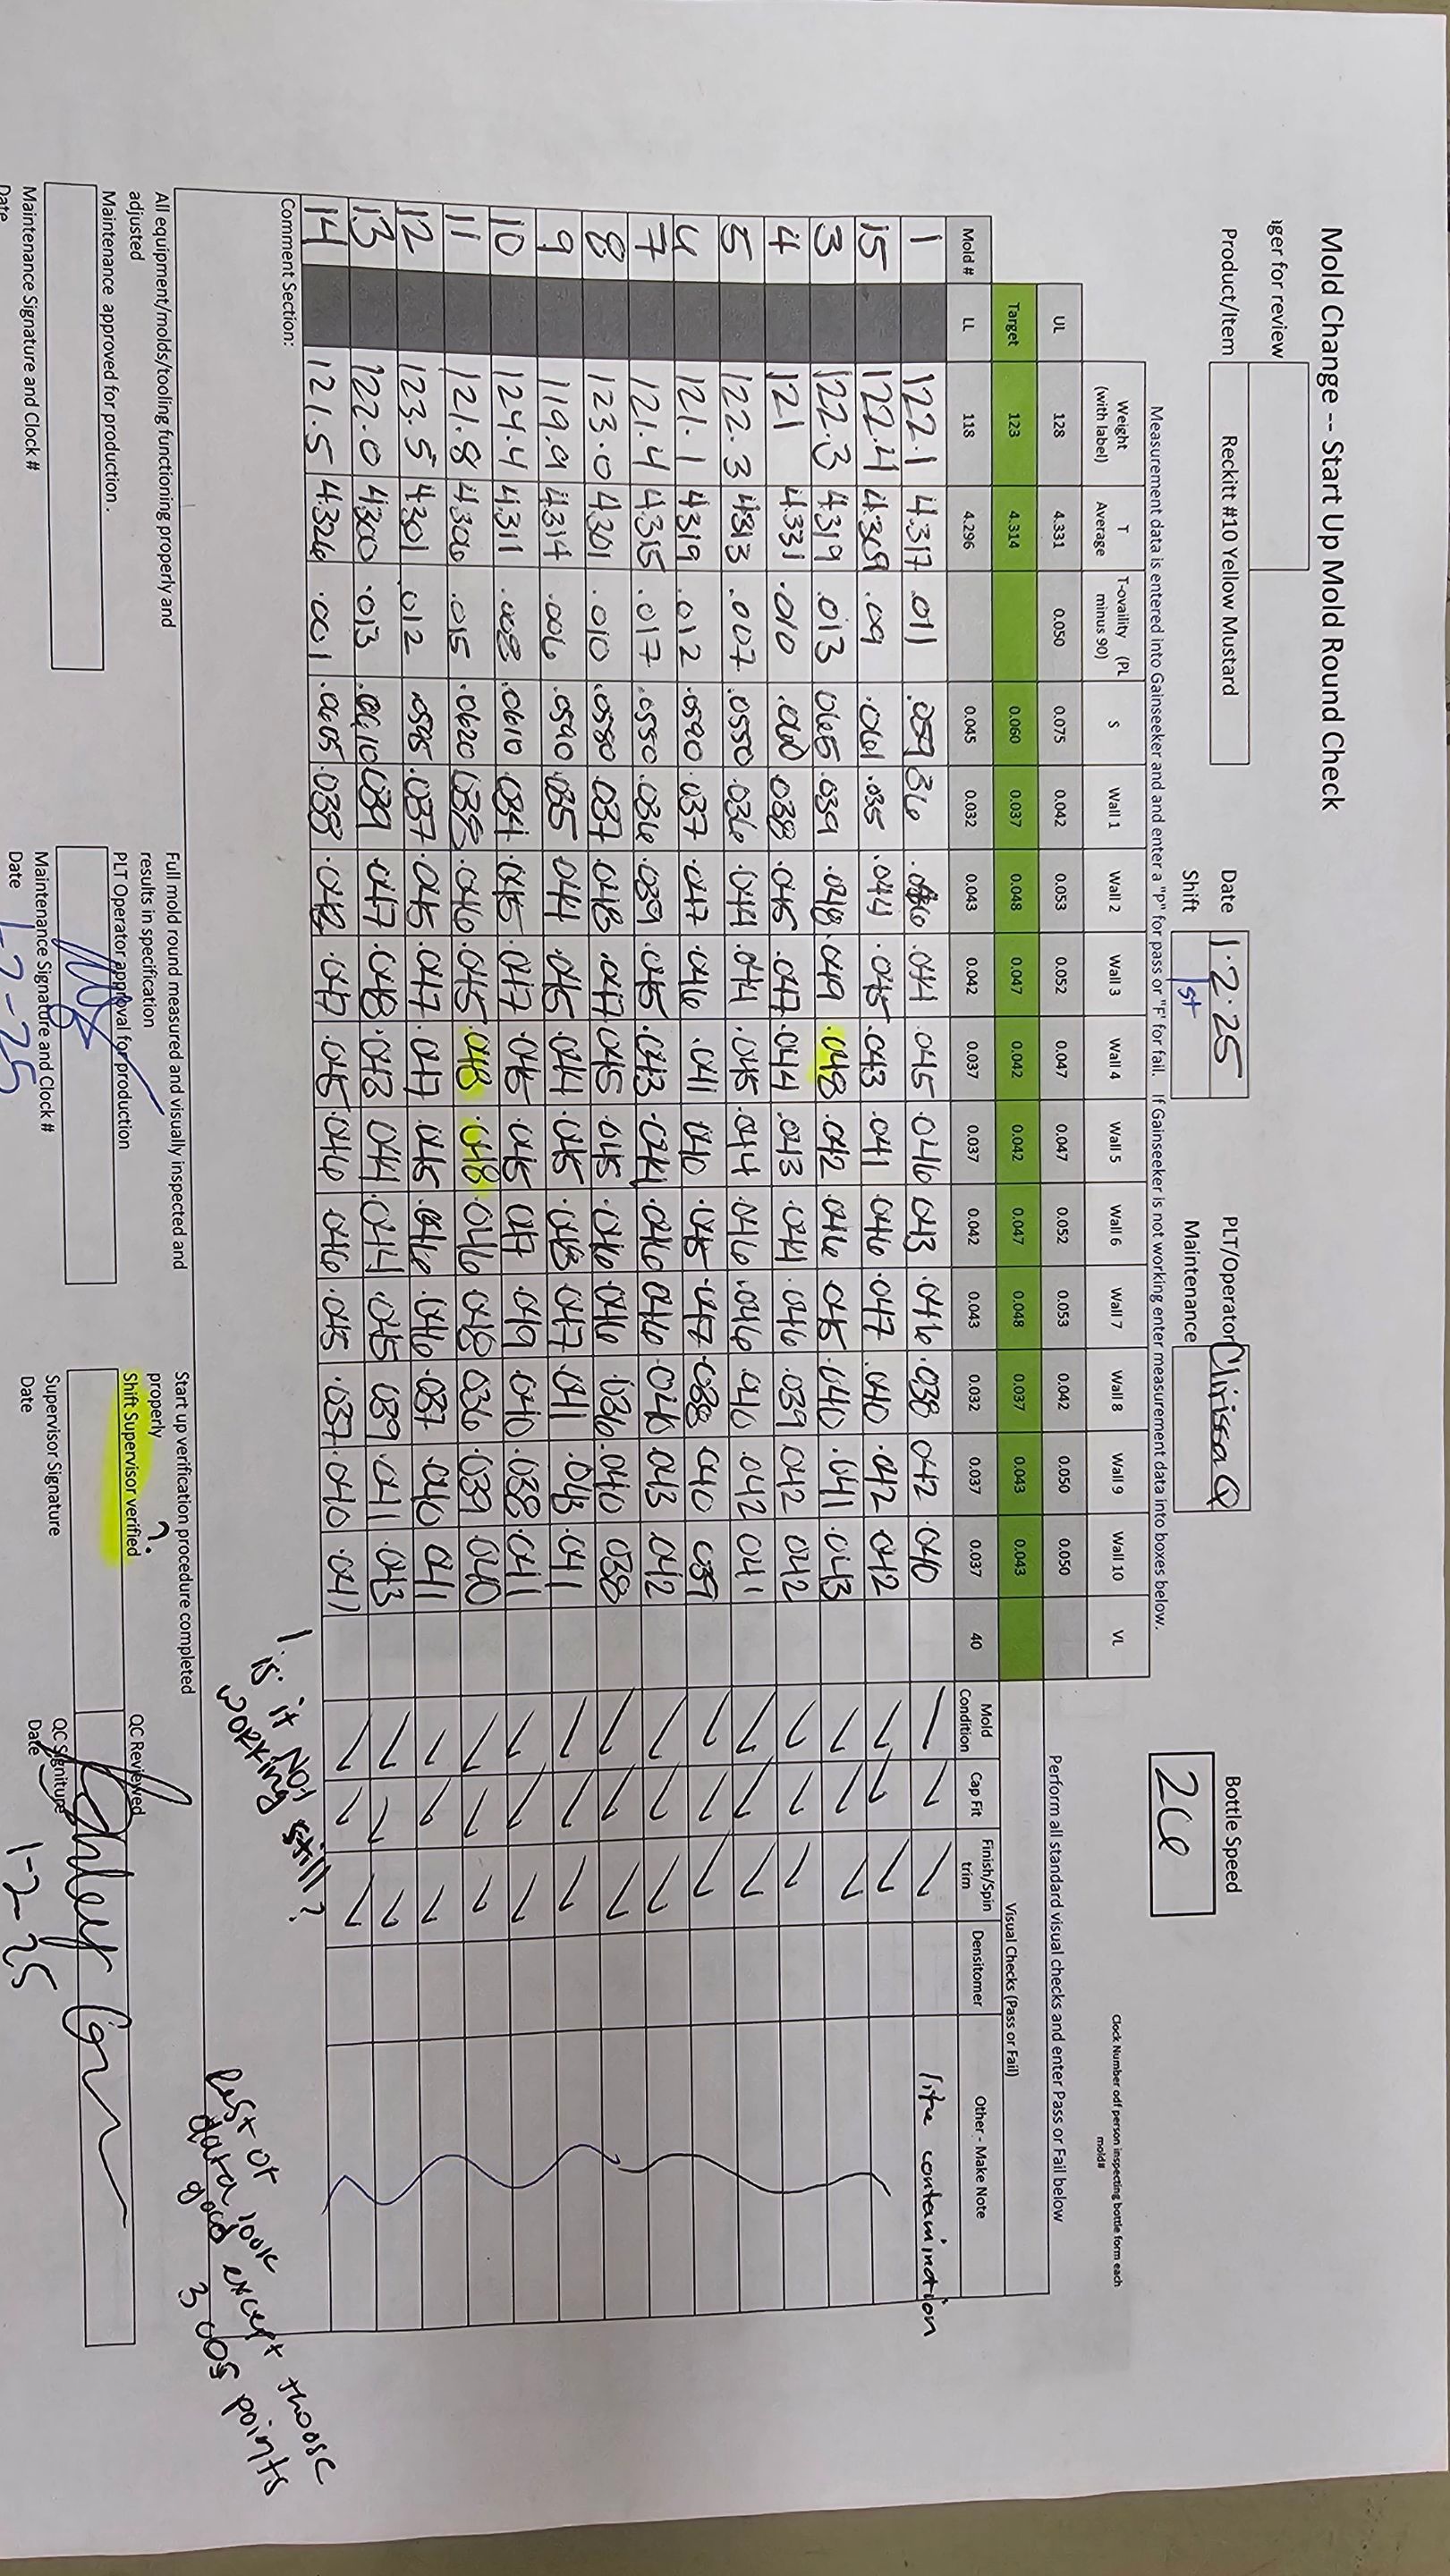 Mold Change -- Start Up Mold Round Check
ger for review
Product/Item Reckitt #10 Yellow Mustard Date 1·2·25 PLT/Operator Clirissa Q Bottle Speed
Shift 1st Maintenance
Clock Number odf person inspecting bottle form each mold#
Measurement data is entered into Gainseeker and and enter a "P" for pass or "F' for fail. If Gainseeker is not working enter measurement data into boxes below.
Weight (with label) T Average T-ovaility (PL minus 90) S Wall 1 Wall 2 Wall 3 Wall 4 Wall 5 Wall 6 Wall 7 Wall 8 Wall 9 Wall 10 VL Perform all standard visual checks and enter Pass or Fail below
UL 128 4.331 0.050 0.075 0.042 0.053 0.052 0.047 0.047 0.052 0.053 0.042 0.050 0.050
Target 123 4.314 0.060 0.037 0.048 0.047 0.042 0.042 0.047 0.048 0.037 0.043 0.043 Visual Checks (Pass or Fail)
Mold # LL 118 4.296 0.045 0.032 0.043 0.042 0.037 0.037 0.042 0.043 0.032 0.037 0.037 40 Mold Condition Cap Fit Finish/Spin trim Densitomer Other - Make Note
1 122.1 4.317 .011 .059 36 .044 .045 .046 043 .046 .038 042 .040 litre contamination
15 122.4 4.309 .09 .061 .035 .044 .045 .043 .041 .046 .047 .040 .042 042
3 122.3 4.319 .013 065 .039 .048 .049 .048 .042 .046 .045 .040 .041 .043
4 121 4.331 .010 .060 .038 .045 .047 .044 .043 .044 .046 .039 .042 .042
5 122.3 4.313 .007 .0550 .036 .044 .044 .045 .044 .046 .046 .040 .042 .041
6 121.1 4.319 .012 .0590 .037 .047 .046 .041 .040 .045 .47 .038 .040 .039
7 121.4 4.315 .017 .0550 .036 .039 .045 .043 .044 .046 .046 .040 .043 .042
8 123.0 4.301 .010 .0580 .037 .048 .047 .045 .045 .046 .046 .036 .040 .038
9 119.9 4.314 .006 .0590 .035 .044 .045 .044 .045 .048 .047 .041 .043 .041
10 124.4 4.311 .008 .0610 .034 .045 .047 .045 .045 .047 .049 .040 .038 .041
11 121.8 4.306 .015 .0620 .038 .046 .045 .048 .048 .046 .048 .036 .039 .040
12 123.5 4.301 .012 .0595 .037 .045 .047 .047 .045 .046 .046 .037 .040 .041
13 122.0 4.300 .013 .0610 .039 .047 .048 .043 .044 .044 .045 .039 .041 .043
14 121.5 4.326 .001 .0605 .038 .048 .047 .045 .046 .046 .045 .037 .040 .041
Comment Section:
is it Not still? working
Rest of data look good except thoose 3 obs points
All equipment/molds/tooling functioning properly and adjusted
Full mold round measured and visually inspected and results in specification
Start up verification procedure completed properly ?
Maintenance approved for production.
PLT Operator approval for production
Shift Supervisor verified
QC Reviewed
Maintenance Signature and Clock #
Maintenance Signature and Clock #
Supervisor Signature
QC Signiture
Date
Date 1-2-25
Date
Date 1-2-25